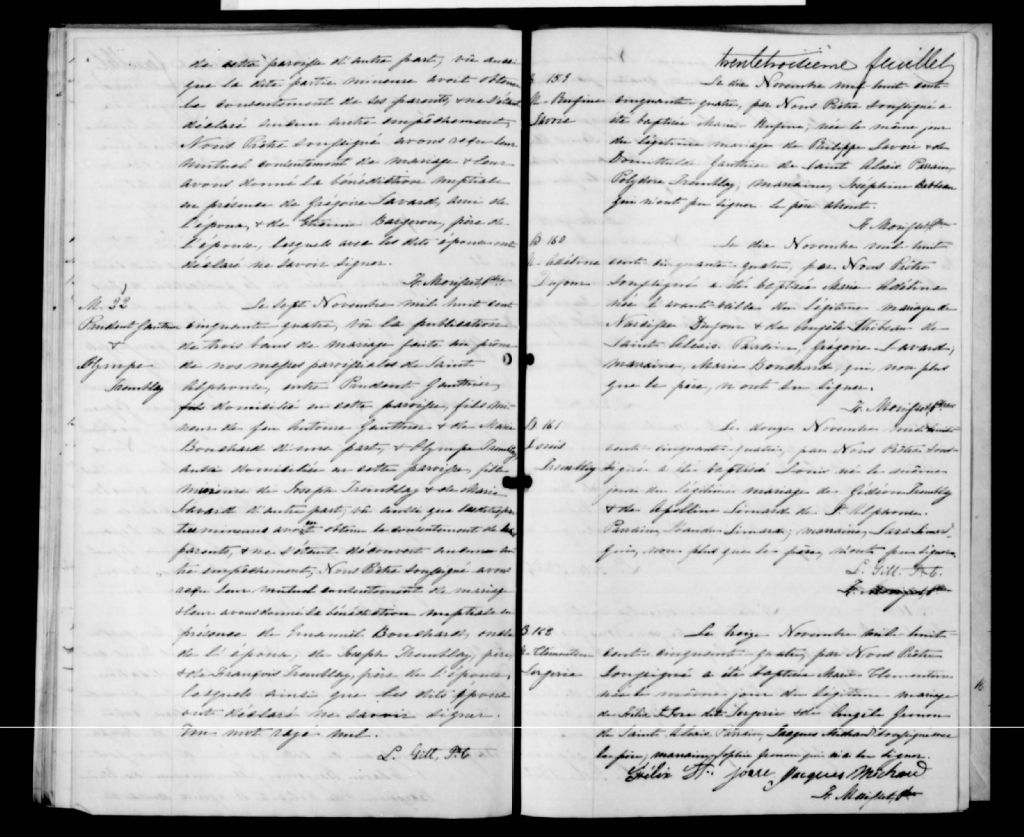 de cette paroisse d'autre part; vû aussi
que la dite partie mineure avoit obtenu
le consentement de ses parents, & ne s'étant
déclaré aucun autre empêchement,
Nous Prêtre soussigné avons reçu leur
mutuel consentement de mariage & leur
avons donné la bénédiction nuptiale
en présence de Grégoire Savard, ami de
l'époux, & de Etienne Bergeron, père de
l'épouse, lesquels avec les dits époux ont
déclaré ne savoir signer.
M. 22
Prudent Gauthier
&
Olympe
Tremblay
Le sept Novembre mil huit cent
cinquante quatre, vû la publication
de trois bans de mariage faite au prône
de nos messes paroissiales de Saint
Alphonse, entre Prudent Gauthier,
domicilié en cette paroisse, fils mi-
neur de feu Antoine Gauthier & de Marie
Bouchard d'une part, & Olympe Tremblay
aussi domiciliée en cette paroisse, fille
mineure de Joseph Tremblay & de Marie
Savard d'autre part; vû aussi que les dites par-
ties mineures avoient obtenu le consentement de leurs
parents, & ne s'étant découvert aucun au-
tre empêchement, Nous Prêtre soussigné avons
reçu leur mutuel consentement de mariage
& leur avons donné la bénédiction nuptiale en
présence de Emanuel Bouchard, oncle
de l'époux, de Joseph Tremblay, père,
& de François Tremblay, père de l'épouse,
lesquels ainsi que les dits époux
ont déclaré ne savoir signer.
Un mot rayé nul.
L. Gill, Ptr
trentetroisième feuillet
B 159
M. Rufine
Savoie
Le dix Novembre mil huit cent
cinquante quatre, par Nous Prêtre soussigné a
été baptisée Marie Rufine, née le même jour
du légitime mariage de Philippe Savoie & de
Domithilde Gauthier de Saint Alexis. Parrain,
Polydore Tremblay, marraine, Joséphine
qui n'ont pu signer le père absent.
B 160
M. Adéline
Dufour
Le dix Novembre mil huit
cent cinquante quatre, par Nous Prêtre
soussigné a été baptisée Marie Adéline
née d'avant veille du légitime mariage de
Narcisse Dufour & de Angèle de
Saint Alexis. Parrain, Grégoire Savard,
marraine, Marie Bouchard, qui, non plus
que le père, n'ont su signer.
B 161
Louis
Tremblay
Le douze Novembre mil huit
cent cinquante quatre, par Nous Prêtre sous-
signé a été baptisé Louis né le même
jour du légitime mariage de Gédéon Tremblay
& de Apolline Simard de St Alphonse.
Parrain, Simard; marraine,
qui, non plus que le père, n'ont pu signer.
L. Gill. Ptr
B 162
M. Clémentine
Le treize Novembre mil huit
cent cinquante quatre, par Nous Prêtre
soussigné a été baptisée Marie Clémentine
née le même jour du légitime mariage
de Félix dit & de Angèle
de Saint Alexis. Parrain, Jacques Michaud soussigné avec
le père, marraine Sophie qui n'a su signer.
Félix Jacques Michaud